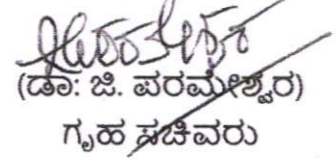 (ಡಾ: ಜಿ. ಪರಮೇಶ್ವರ)
ಗೃಹ ಸಚಿವರು